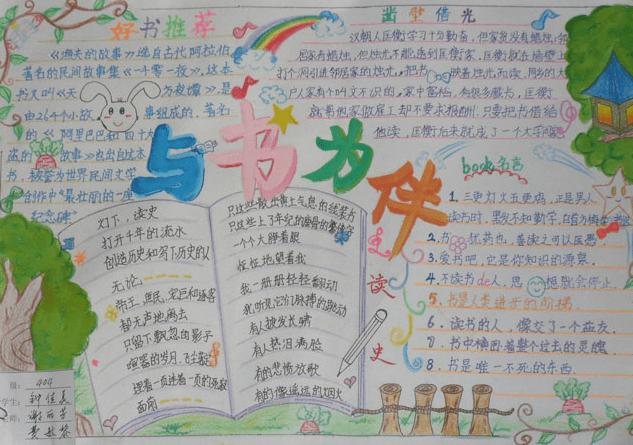 好书推荐
《渔夫的故事》选自古代阿拉伯
著名的民间故事集《一千零一夜》,这本
书又叫《天方夜谭》,是
由264个小故事组成的,著名
的《阿里巴巴和四十大
盗的故事》也出自这本
书,被誉为世界民间文学
创作中"最壮丽的一座
纪念碑"
凿壁借光
汉朝人匡衡学习十分勤奋,但家贫没有蜡烛,邻
居家有蜡烛,但烛光不能透到匡衡家,匡衡就在墙壁上
打个洞引进邻居家的烛光,把书映着烛光而读,同乡的大
户人家有个叫文不识的,家中富裕,有很多藏书,匡衡
就帮他家做雇工却不要求报酬,只要把书借给
他读,匡衡后来就成了一个大学
与书为伴
book名言
1.三更灯火五更鸡,正是男人
读书时,黑发不知勤学
2.书犹药也,善读之可以医愚
3.爱书吧,它是你知识的源泉.
4.不读书de人,思想就会停止.
5.书是人类进步的阶梯.
6.读书的人,像交了一个益友.
7.书中横卧着整个过去的灵魂.
8.书是唯一不死的东西.
读史
灯下,读史
打开千年的流水
创造历史和写下历史的人
无论:
帝王、庶民、宠臣和逐客
都无声地离去
只留下飘忽的影子
喧嚣的岁月,飞尘散
踩着一页连着一页的
面前
只这些散出黄土气息的线装书
一个大睁着眼
怔怔地望着我
我一册册轻轻翻动
我听见它们脉搏的跳动
有人披发长啸
有人热泪满脸
有的悲愤放歌
有的像遥远的烟火
404